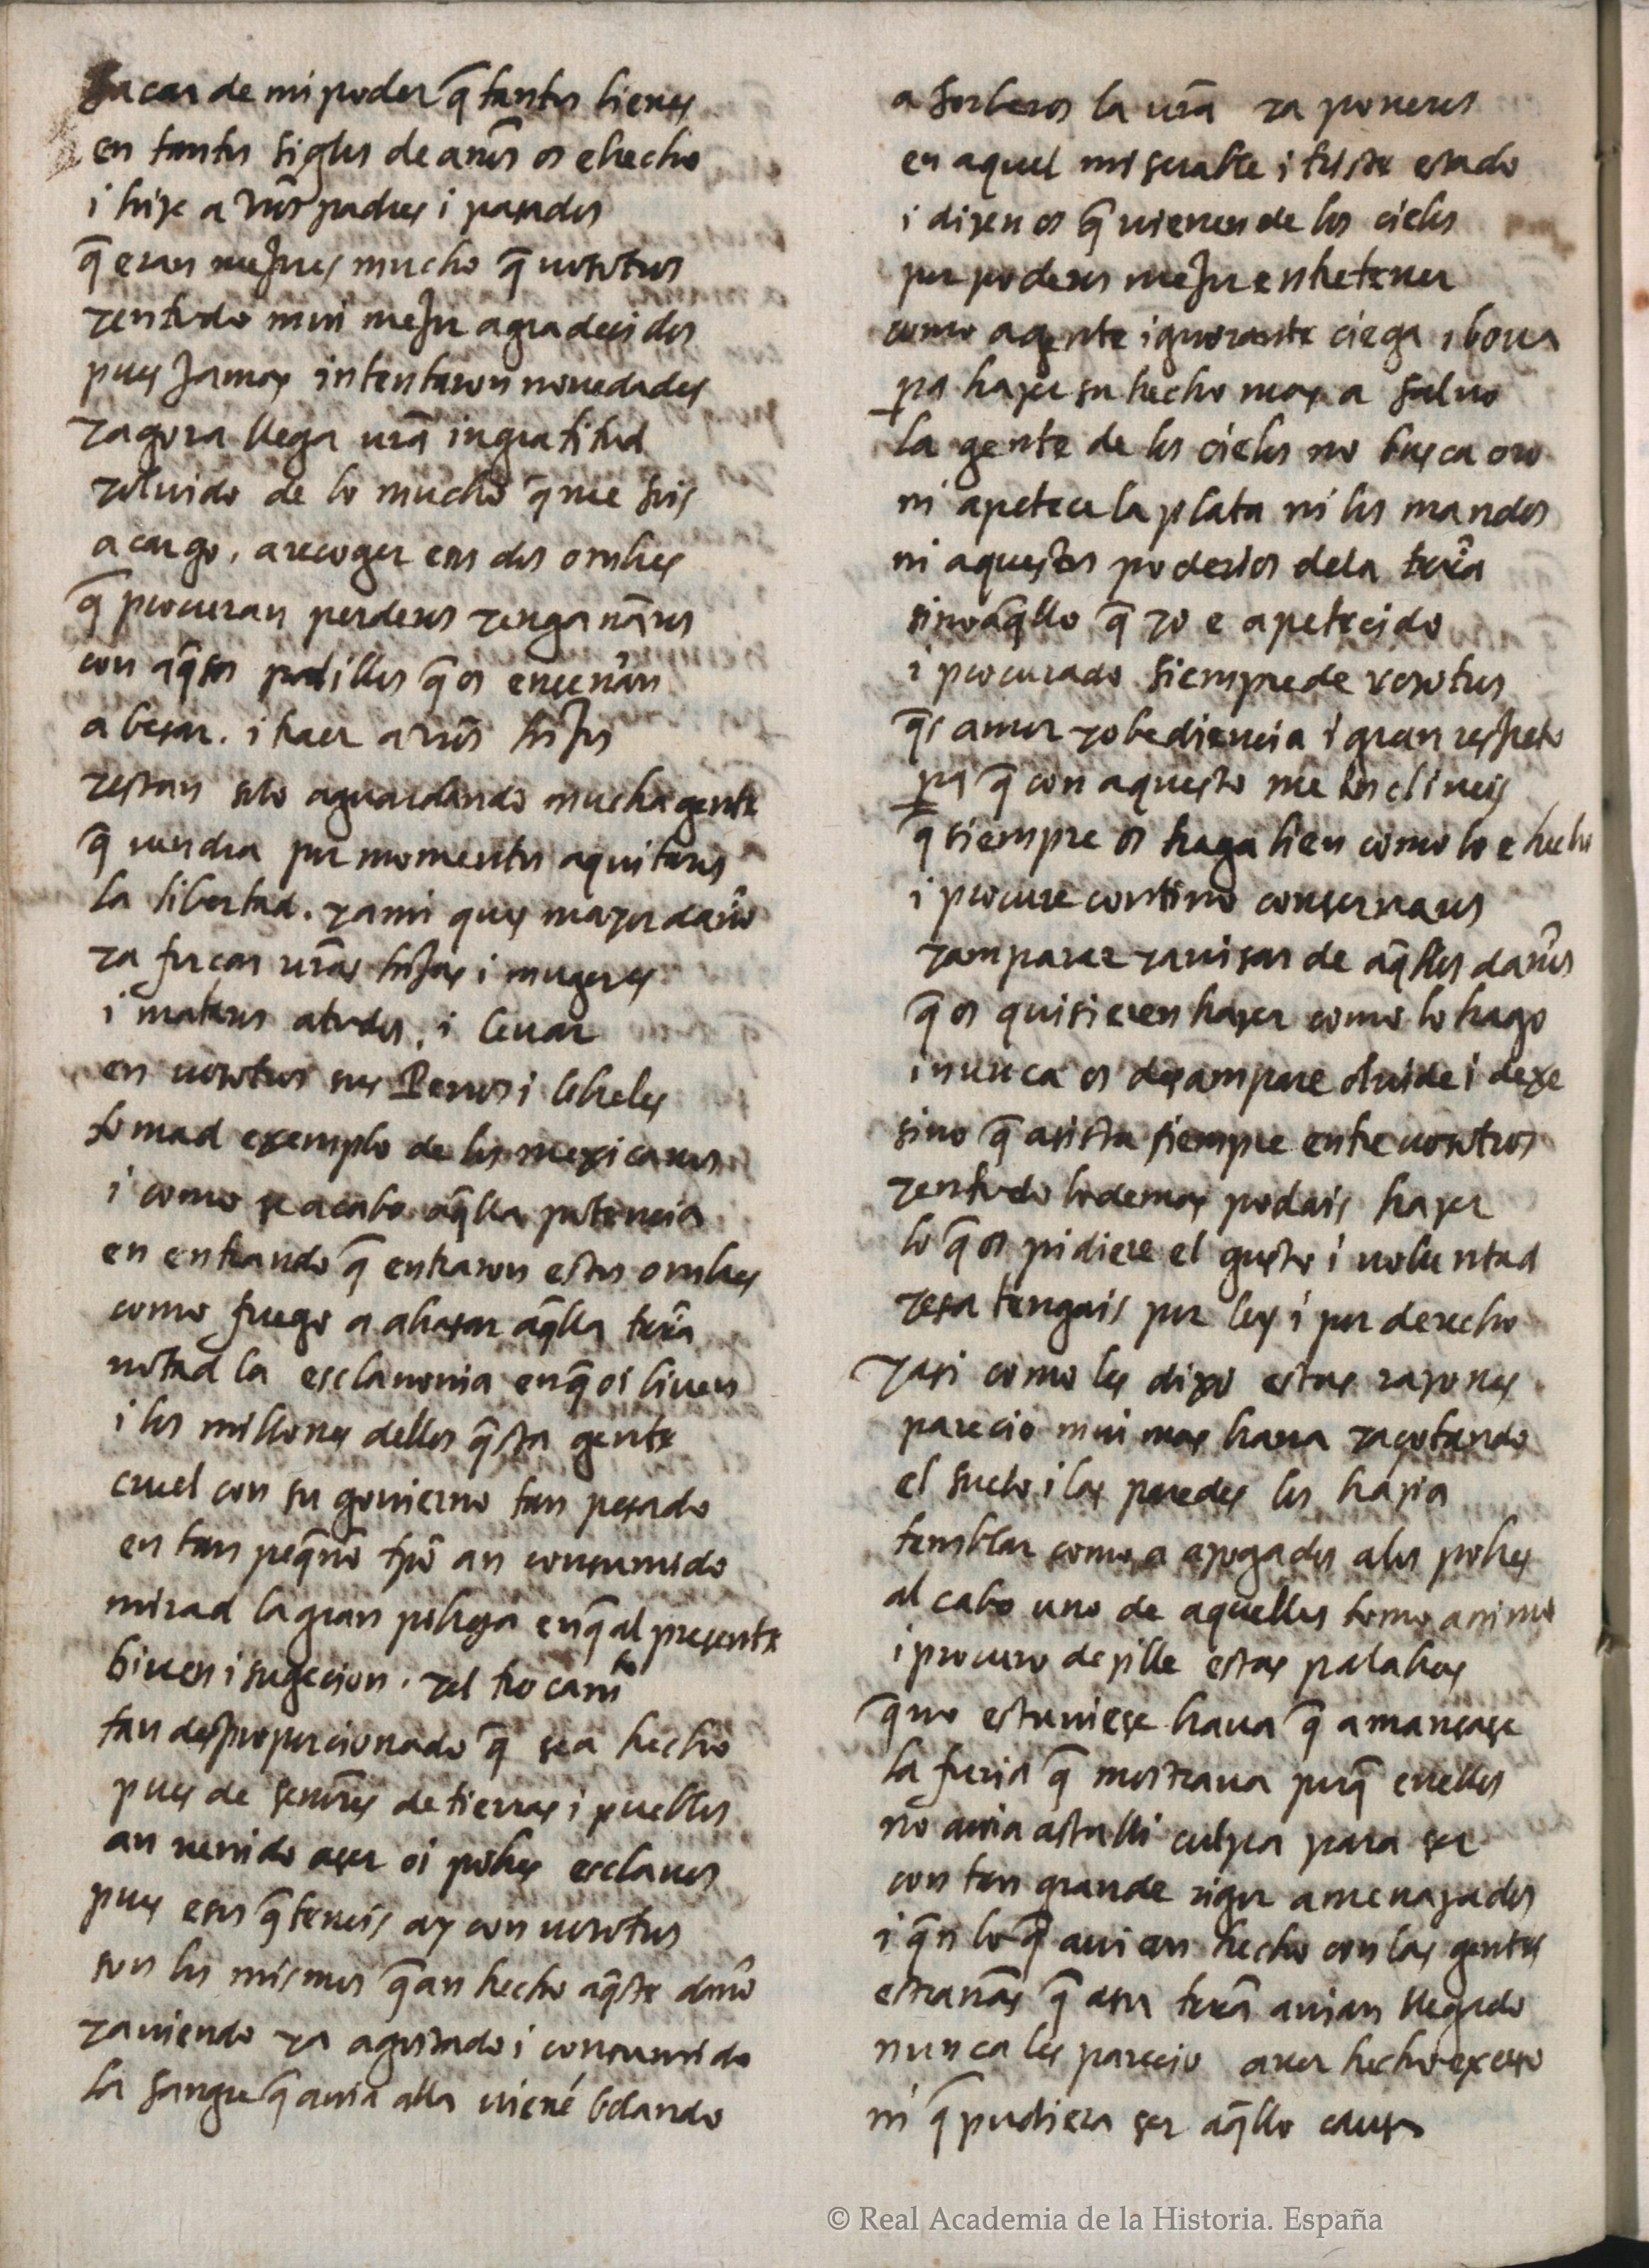 sacar de mi poder q̃ tantos bienes
en tantos siglos de años os e hecho
i hize a vr̃os padres i pasados
q̃ eran mejores mucho q̃ vosotros
y en todo mui mejor agradecidos
pues jamas intentaron novedades
y agora llega vr̃a ingratitud
y oluido de lo mucho q̃ me sois
a cargo, a recoger esos dos ombres
q̃ procuran perderos y engañaros
con aq̃sos palillos q̃ os enseñan
a besar. i traer a vr̃os hijos
y estan solo aguardando mucha gente
q̃ vendra por momentos a quitaros
la libertad. y a mi ques mayor daño
y a forçar vr̃as hijas i mugeres
i mataros a todos, i cevar
en vosotros sus Perros i lebreles
tomad exemplo de los mexicanos
i como se acabo aq̃lla potencia
en entrando q̃ entraron estos ombres
como fuego a abrasar aq̃lla trr̃a
notad la esclavonia en q̃ oi biven
i los millones dellos q̃sta gente
cruel con su govierno tan pesado
en tan peq̃ño tpõ an consumido
mirad la gran pobreza en q̃ al presente
biven i sugecion. y el trocamto
tan desproporcionado q̃ se a hecho
pues de señores de tierras i pueblos
an venido a ser oi pobres esclavos
pues esos q̃ teneis ay con vosotros
son los mismos q̃ an hecho aq̃ste daño
y aviendo ya agotado i consumido
la sangre q̃ avia alla viené bolando
a sorberos la vr̃a y a poneros
en aquel miserable i triste estado
i dizen os q̃ vienen de los cielos
por poderos mejor entretener
como a gente ignorante ciega i bova
pa hazer su hecho mas a salvo
la gente de los cielos no busca oro
ni apetece la plata ni los mandos
ni aquestos poderios de la trr̃a
sino aq̃llo q̃ yo e apetecido
i procurado siempre de vosotros
q̃s amor y obediencia i gran respeto
pa q̃ con aquesto me inclineis
q̃ siempre os haga bien como lo e hecho
i procure contino conservaros
y amparar y avisar de aq̃llos daños
q̃ os quisieren hazer como lo hago
i nunca os desampare olvide i dexe
sino q̃ asista siempre entre vosotros
y en todo lo demas podais hazer
lo q̃ os pidiere el gusto i voluntad
y esa tengais por ley i por derecho
y asi como les dixo estas razones
parecio mui mas brava y açotando
el suelo i las paredes los hazia
temblar como a azogados a los pobres
al cabo uno de aquellos tomo animo
i procuro dezille estas palabras
q̃ no estuviese brava q̃ amansase
la furia q̃ mostrava porq̃ en ellos
no avia asta lli culpa para ser
con tan grande rigor amenazados
i q̃n lo q̃ avian hecho con las gentes
estrañas q̃ a su trr̃a avian llegado
nunca les parecio aver hecho exceso
ni q̃ pudiera ser aq̃llo causa
© Real Academia de la Historia. España